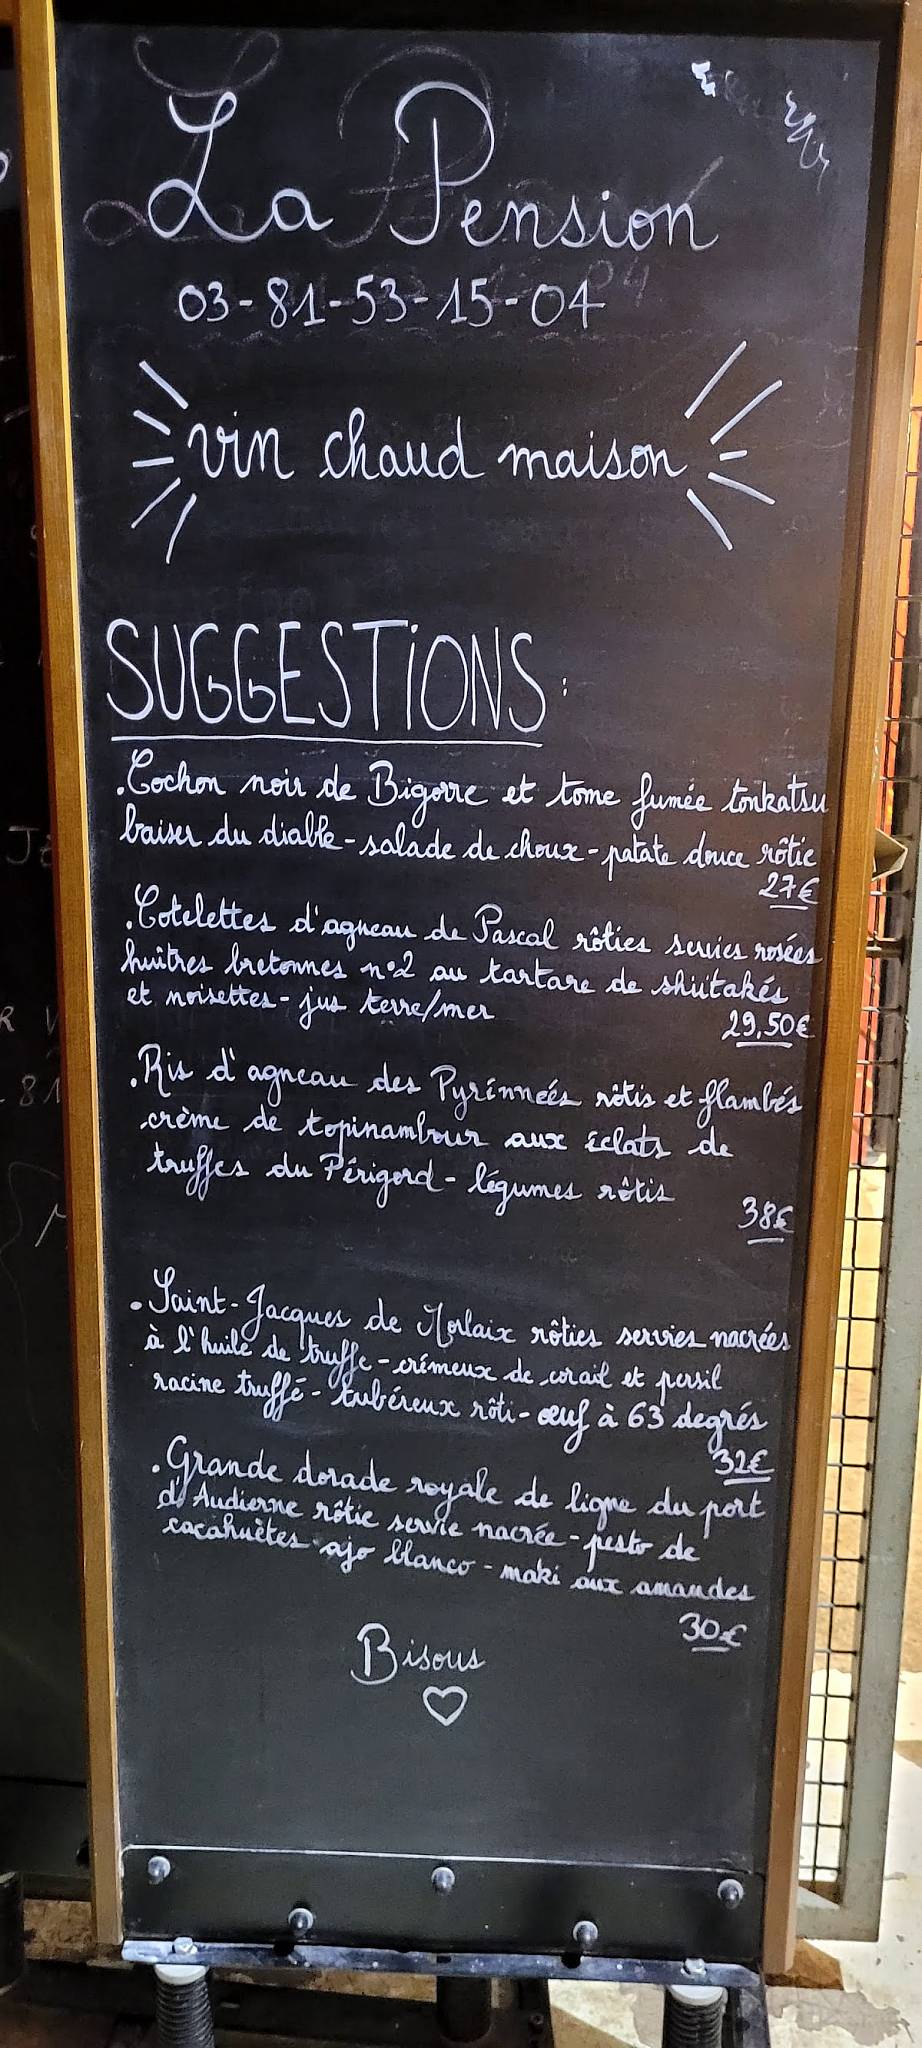 La Pension
03-81-53-15-04
vin chaud maison
SUGGESTIONS:
. Cochon noir de Bigorre et tome fumée tonkatsu
baiser du diable - salade de choux - patate douce rôtie
27€
. Cotelettes d'agneau de Pascal rôties servies rosées
huîtres bretonnes n°2 au tartare de shiitakés
et noisettes - jus terre/mer
29,50€
. Ris d'agneau des Pyrénneés rôtis et flambés
crème de topinambour aux éclats de
truffes du Périgord - légumes rôtis
38€
. Saint-Jacques de Morlaix rôties servies nacrées
à l'huile de truffe - crémeux de corail et persil
racine truffé - tubéreux rôti - œuf à 63 degrés
32€
. Grande dorade royale de ligne du port
d'Audierne rôtie servie nacrée - pesto de
cacahuètes ajo blanco - maki aux amandes
30€
Bisous